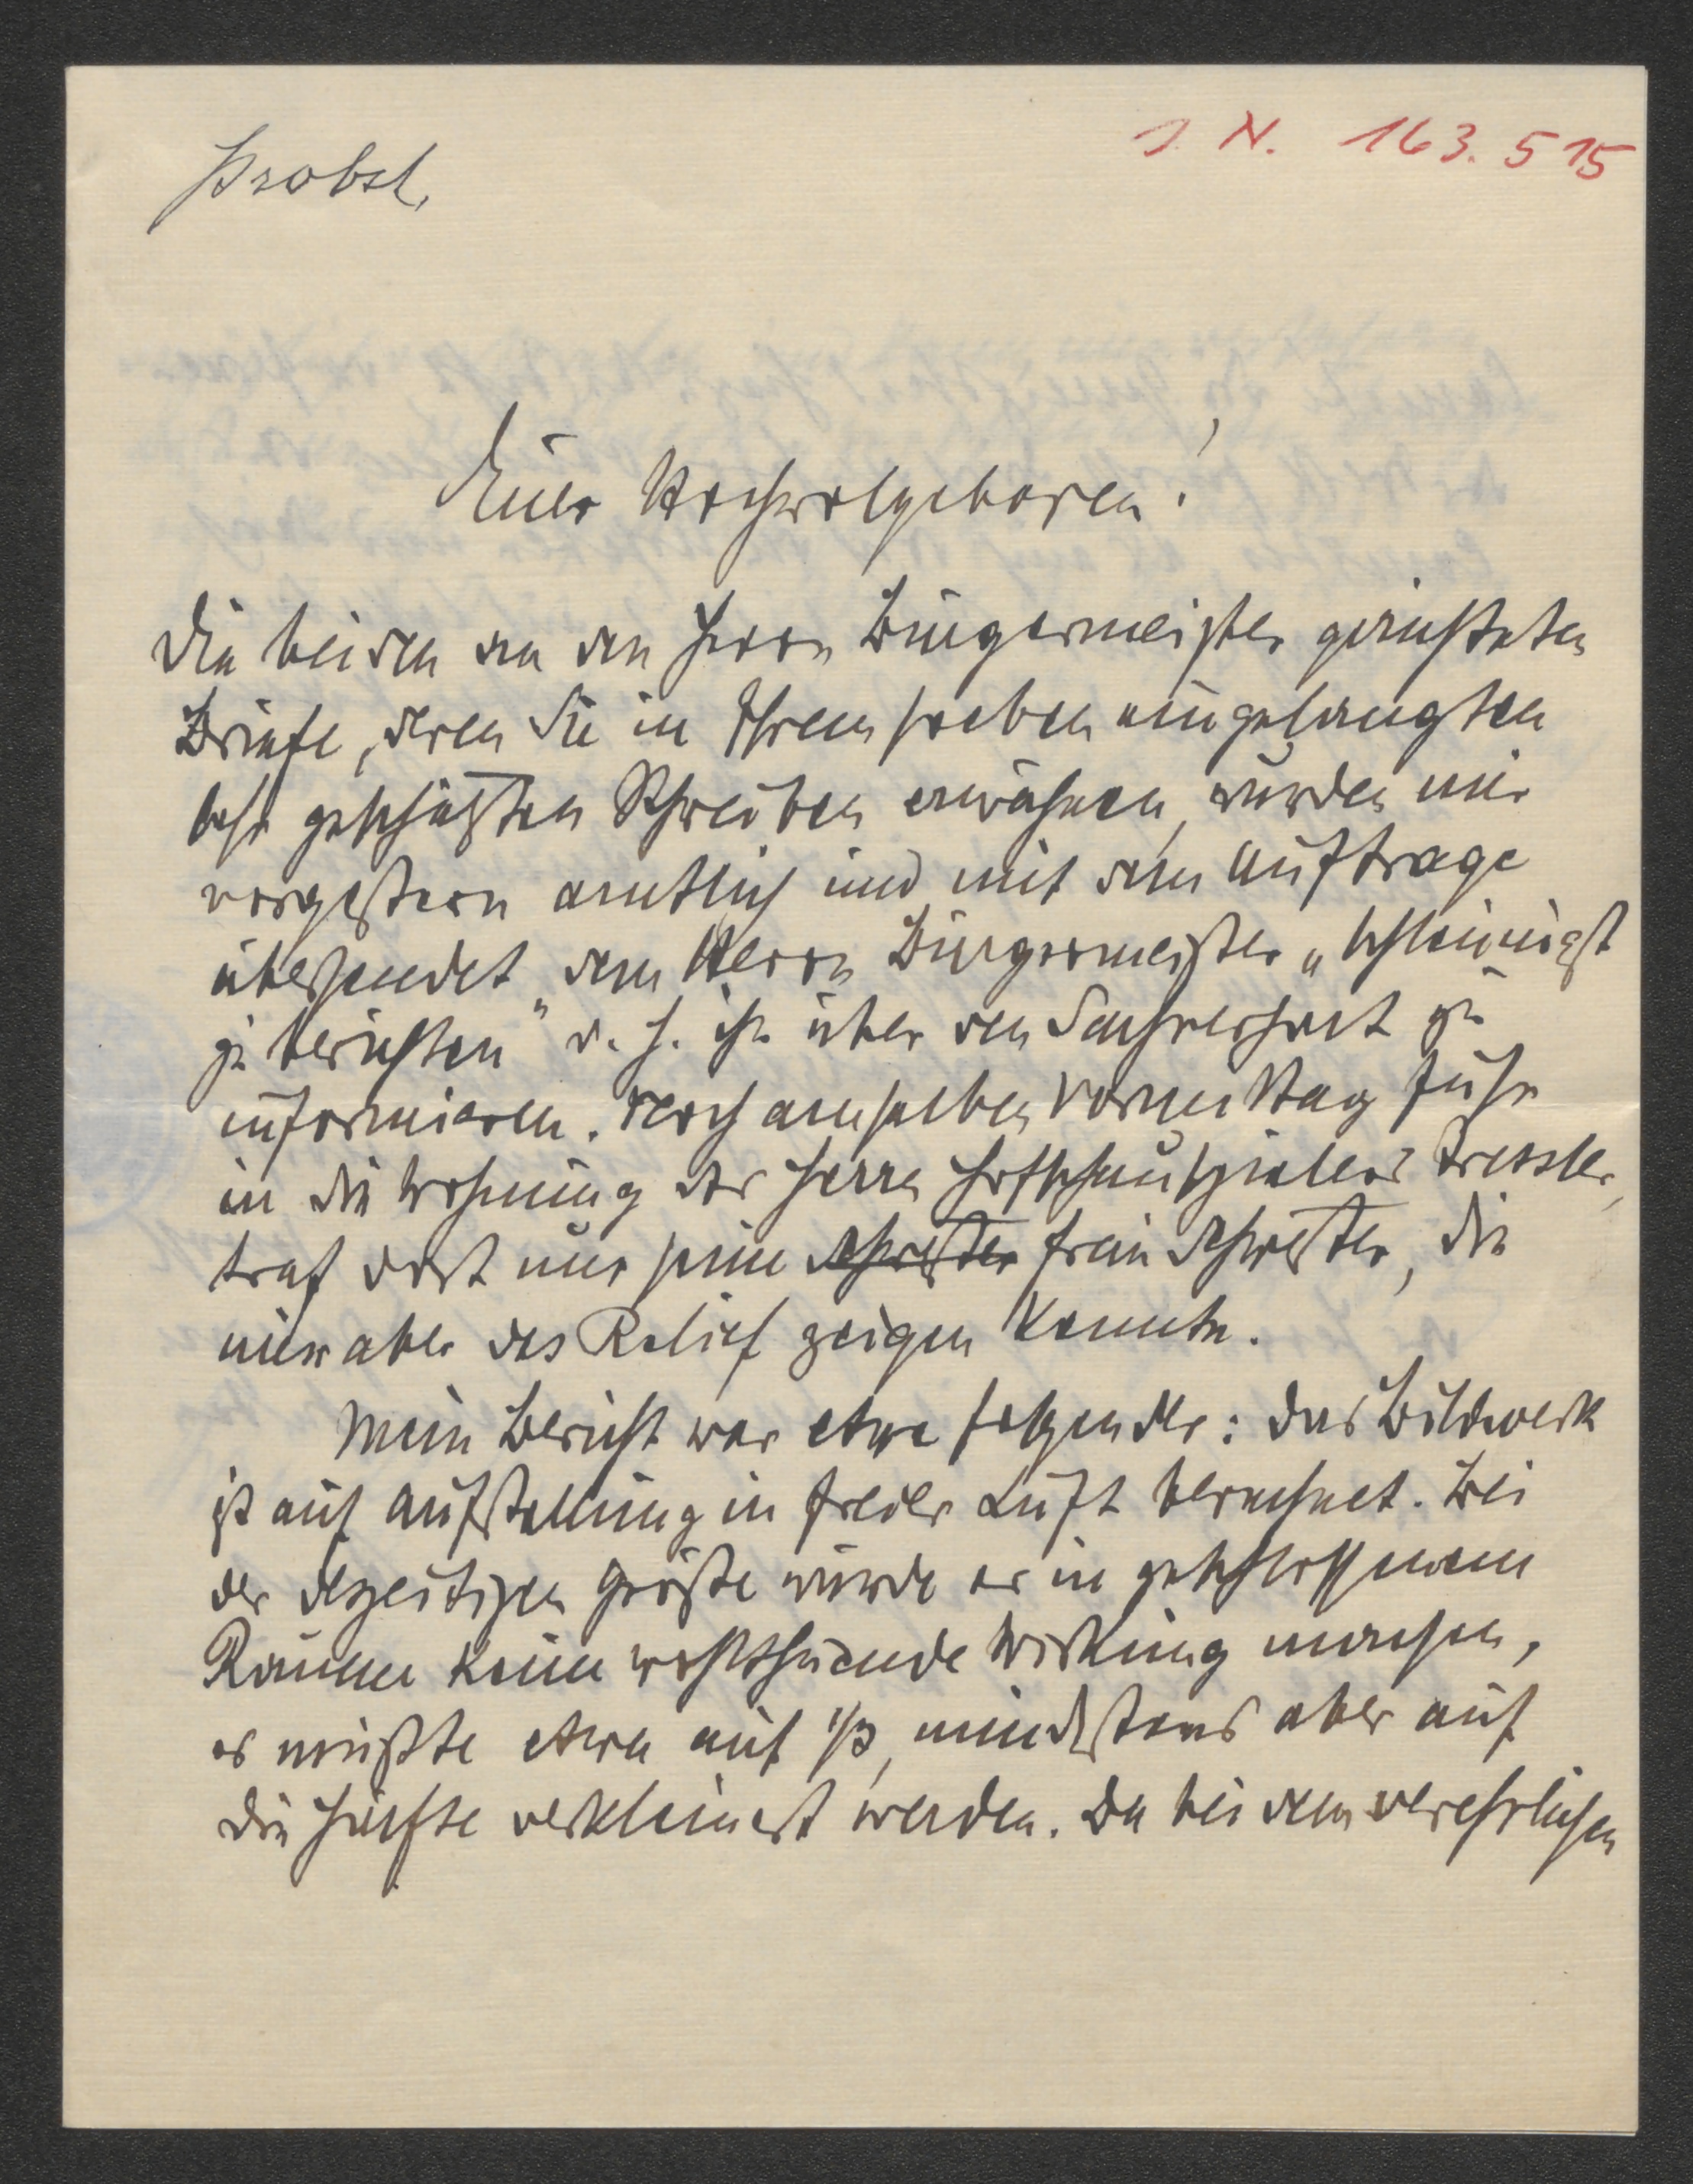 Probst,
I. N. 163.515
Euer Hochwolgeboren!
Die beiden an den Herrn Bürgermeister gerichteten
Briefe, deren Sie in Ihrem soeben eingelangten
sehr geschätzten Schreiben erwähnen, wurden mir
vorgestern amtlich und mit dem Auftrage
übersendet, dem Herrn Bürgermeister „schleunigst
zu berichten" d. h. ihn über den Sachverhalt zu
informieren. Noch am selben Vormittag fuhr
in die Wohnung des Herrn Hofschauspielers Tressler,
traf dort nur seine Schwester Frau Schwester, die
mir aber das Relief zeigen konnte.
Mein Bericht war etwa folgender: Das Bildwerk
ist auf Aufstellung in freier Luft berechnet. Bei
der derzeitigen Größe würde es in geschlossenem
Raume keine wohlthuende Wirkung machen,
es müßte etwa auf 1/3, mindestens aber auf
die Hälfte verkleinert werden. Da bei dem